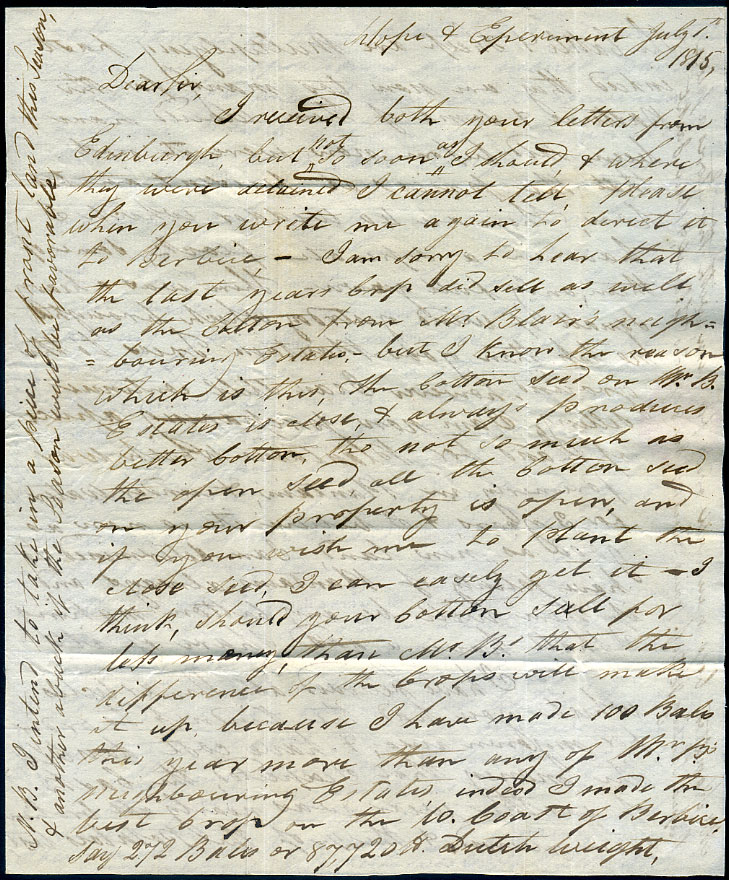 Hope & Experiment July 1st
1815,
Dear Sir,
I received both your letters from
Edinburgh, but not so soon as I should, & where
they were detained I cannot tell, please
when you write me again to derect it
to Berbice, – I am sorry to hear that
the last years Crop did sell as well
as the Cotton from Mr. Blair's neigh=
=bouring Estates,– but I know the reason
which is this, the Cotton seed on Mr. B.
Estates is close, & always produces
better Cotton, tho not so much as
the open seed all the Cotton seed
on your property is open, and
if you wish me to plant the
close seed, I can easely get it – I
think, should your Cotton sell for
less money, than Mr. Bs. that the
difference of the Crops will make
it up, because I have made 100 Bales
this year more than any of Mr. B's
neighbouring Estates indeed I made the
best Crop on the W. Coast of Berbice,
say 272 Bales or 87720 lb. Dutch weight,
N.B. I intend to take in a piece of front land this season,
& another aback if the Season will be favorable